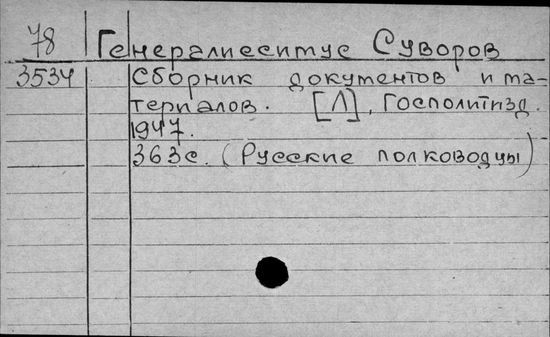 78 Генералиссимус Суворов
3534 Сборник документов и ма-
териалов. [Л], Госполитизд.
1947.
363с. (Русские полководцы)